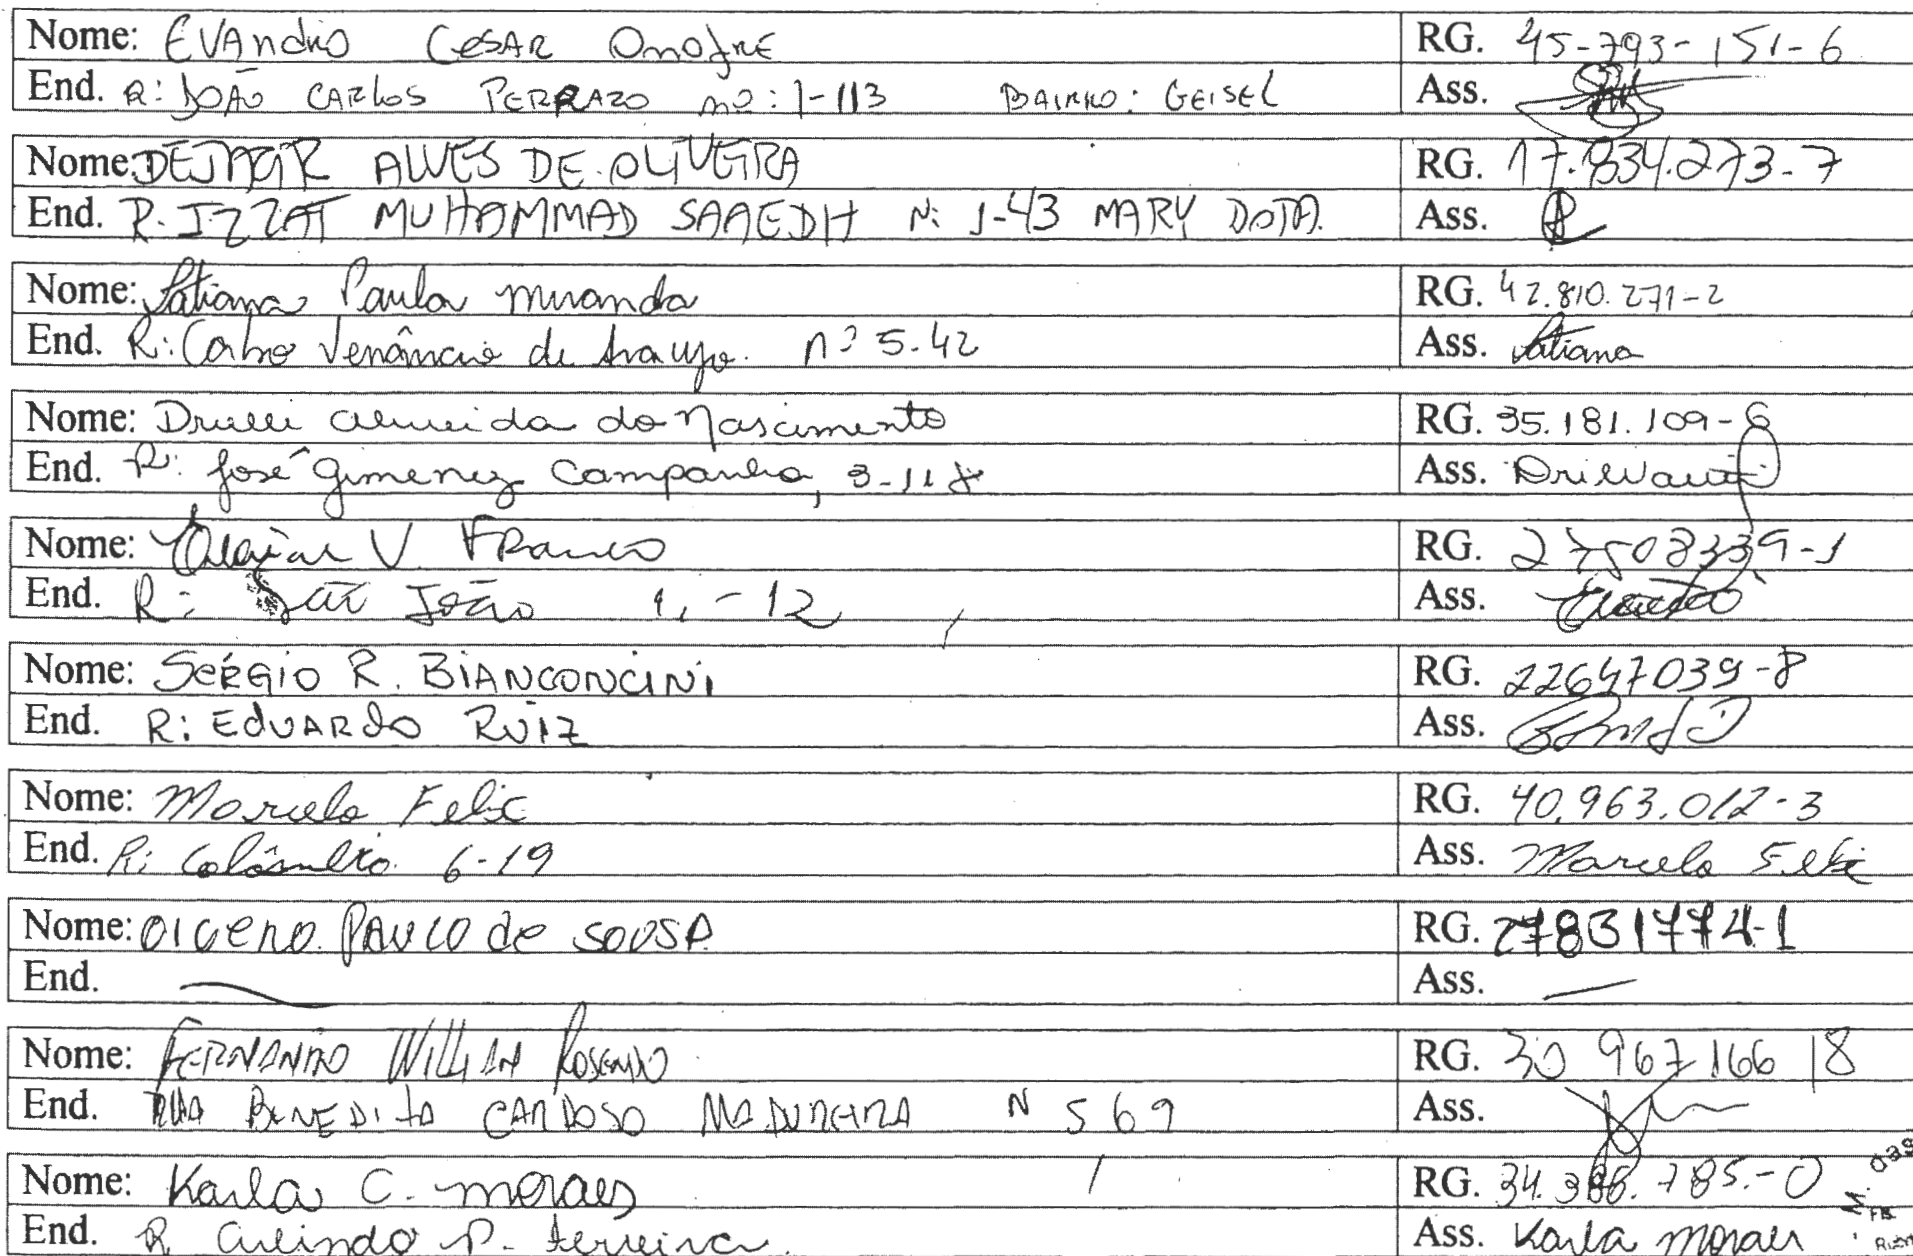 Nome: EVANDRO CESAR ONOFRE RG. 45-793-151-6
End. R: JOÃO CARLOS PERRAZO nº: 1-113 BAIRRO: GEISEL Ass.
Nome: DEJAIR ALVES DE OLIVEIRA RG. 17.834.273-7
End. R. IZZAT MUHAMMAD SAAEDH N: 1-43 MARY DOTA. Ass.
Nome: Tatiana Paula Miranda RG. 42.810.271-2
End. R: Carlos Venâncio de Araujo. nº 5-42 Ass. Tatiana
Nome: Almeida do Nascimento RG. 35.181.109-6
End. R: José Gimenez Campanha, 3-118 Ass.
Nome: V. Franco RG. 27508339-1
End. R: São João -12 Ass.
Nome: SÉRGIO R. BIANCONCINI RG. 22647039-8
End. R: EDUARDO RUIZ Ass.
Nome: Marcelo Felix RG. 40.963.012-3
End. R: Colômbia 6-19 Ass. Marcelo Felix
Nome: CICERO PAULO de SOUSA RG. 27831774-1
End. Ass.
Nome: FERNANDO WILLIAN ROSENDO RG. 30 967 166 18
End. RUA BENEDITA CARDOSO MADUREIRA N 569 Ass.
Nome: Karla C. Moraes RG. 34.386.785.-0
End. R Arlindo P. Ferreira Ass. Karla Moraes